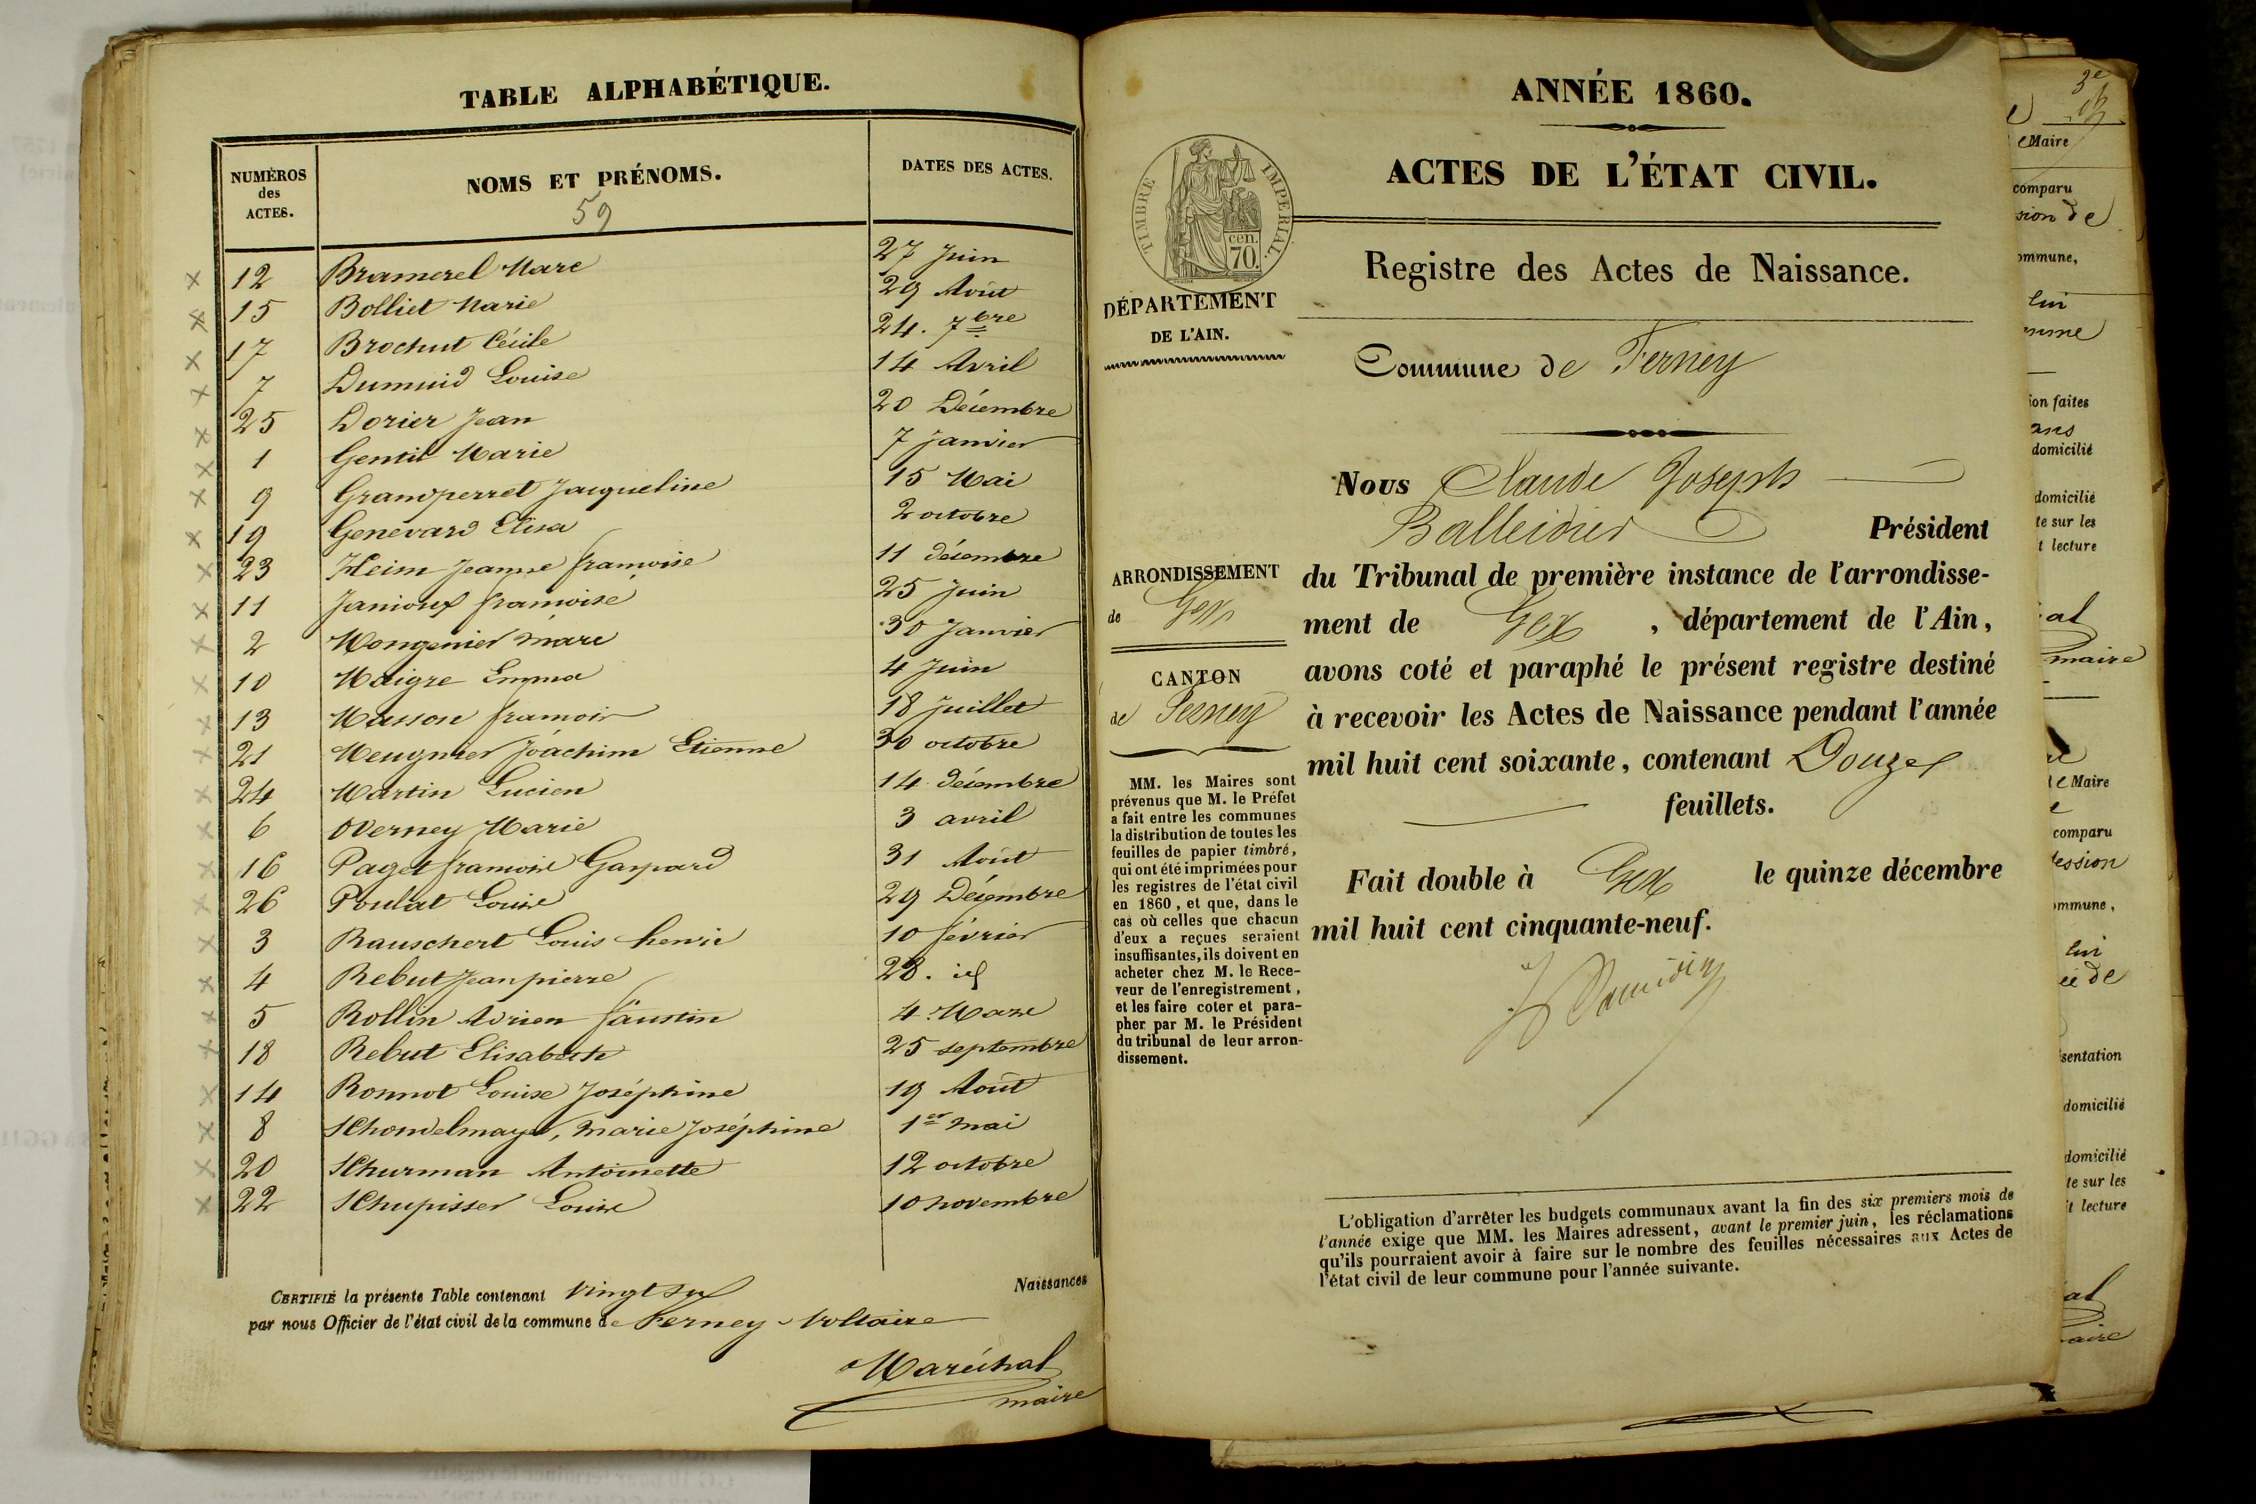 TABLE ALPHABÉTIQUE.
NUMÉROS des ACTES.
NOMS ET PRÉNOMS.
DATES DES ACTES.
59
12 Bramerel Marc 27 Juin
15 Bolliet Marie 29 Août
17 Brochut Cécile 24. 7bre
7 Dumuid Louise 14 Avril
25 Dorier Jean 20 Décembre
1 Gentil Marie 7 Janvier
9 Grandperret Jacqueline 15 Mai
19 Genevard Elisa 2 octobre
23 Heim Jeanne françoise 11 décembre
11 Janioux françoise 25 Juin
2 Mongenier Marc 30 Janvier
10 Maigre Emma 4 Juin
13 Masson françois 18 Juillet
21 Meugnier Joachim Etienne 30 octobre
24 Martin Lucien 14 décembre
6 Overney Marie 3 avril
16 Paget françois Gaspard 31 Août
26 Poulat Louise 29 Décembre
3 Rauschert Louis henri 10 février
4 Rebut Jean pierre 28. id
5 Rollin Adrien faustin 4 Mars
18 Rebut Elisabeth 25 septembre
14 Ronnot Louise Joséphine 19 Août
8 Schondelmayer, Marie Joséphine 1er mai
20 Schurman Antoinette 12 octobre
22 Schupisser Louise 10 novembre
CERTIFIÉ la présente Table contenant vingt six Naissances
par nous Officier de l'état civil de la commune de Ferney-Voltaire
Maréchal
maire
ANNÉE 1860.
ACTES DE L'ÉTAT CIVIL.
TIMBRE IMPÉRIAL.
cen.
70.
Registre des Actes de Naissance.
DÉPARTEMENT
DE L'AIN.
Commune de Ferney
Nous Claude Joseph
Balleidier Président
ARRONDISSEMENT
de Gex
CANTON
de Ferney
du Tribunal de première instance de l'arrondisse-
ment de Gex, département de l'Ain,
avons coté et paraphé le présent registre destiné
à recevoir les Actes de Naissance pendant l'année
mil huit cent soixante, contenant Douze
feuillets.
MM. les Maires sont
prévenus que M. le Préfet
a fait entre les communes
la distribution de toutes les
feuilles de papier timbré,
qui ont été imprimées pour
les registres de l'état civil
en 1860, et que, dans le
cas où celles que chacun
d'eux a reçues seraient
insuffisantes, ils doivent en
acheter chez M. le Rece-
veur de l'enregistrement,
et les faire coter et para-
pher par M. le Président
du tribunal de leur arron-
dissement.
Fait double à Gex le quinze décembre
mil huit cent cinquante-neuf.
L'obligation d'arrêter les budgets communaux avant la fin des six premiers mois de
l'année exige que MM. les Maires adressent, avant le premier juin, les réclamations
qu'ils pourraient avoir à faire sur le nombre des feuilles nécessaires aux Actes de
l'état civil de leur commune pour l'année suivante.
Maire
comparu
sion de
ommune,
lui
ion faites
ans
domicilié
domicilié
te sur les
t lecture
al
maire
Maire
comparu
fession
ommune,
lui
ée de
sentation
domicilié
domicilié
te sur les
t lecture
al
aire